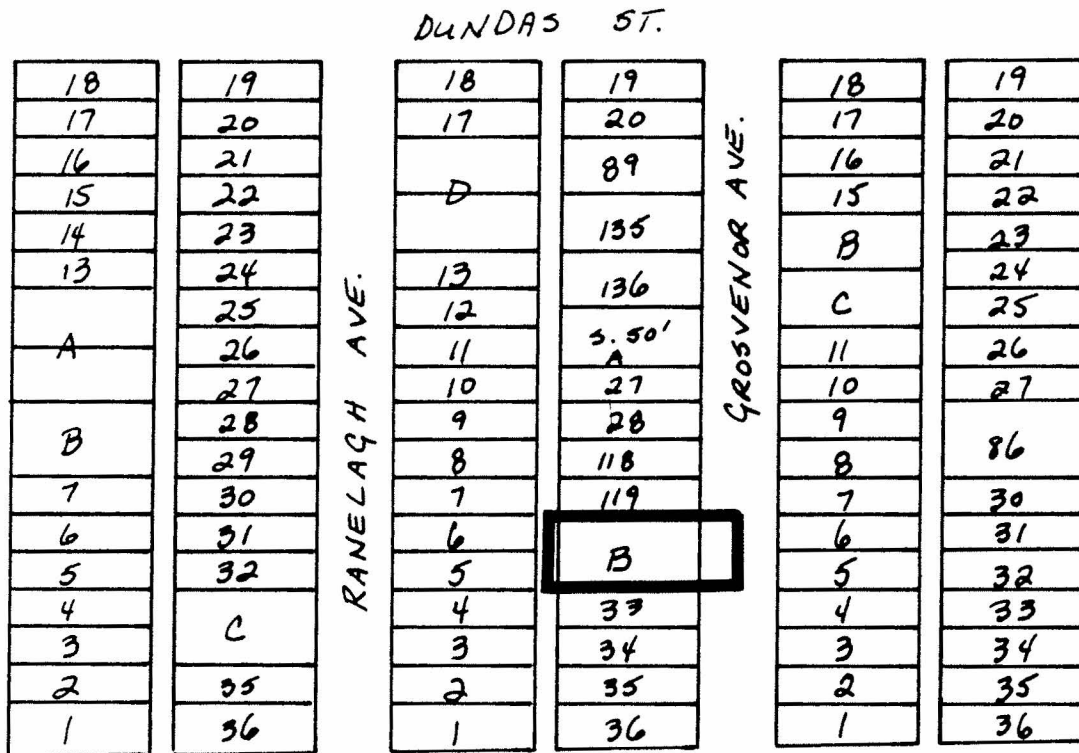 DUNDAS ST.
18
17
16
15
14
13
A
B
7
6
5
4
3
2
1
19
20
21
22
23
24
25
26
27
28
29
30
31
32
C
35
36
RANELAGH AVE.
18
17
D
13
12
11
10
9
8
7
6
5
4
3
2
1
19
20
89
135
136
S. 50'
A
27
28
118
119
B
33
34
35
36
GROSVENOR AVE.
18
17
16
15
B
C
11
10
9
8
7
6
5
4
3
2
1
19
20
21
22
23
24
25
26
27
86
30
31
32
33
34
35
36